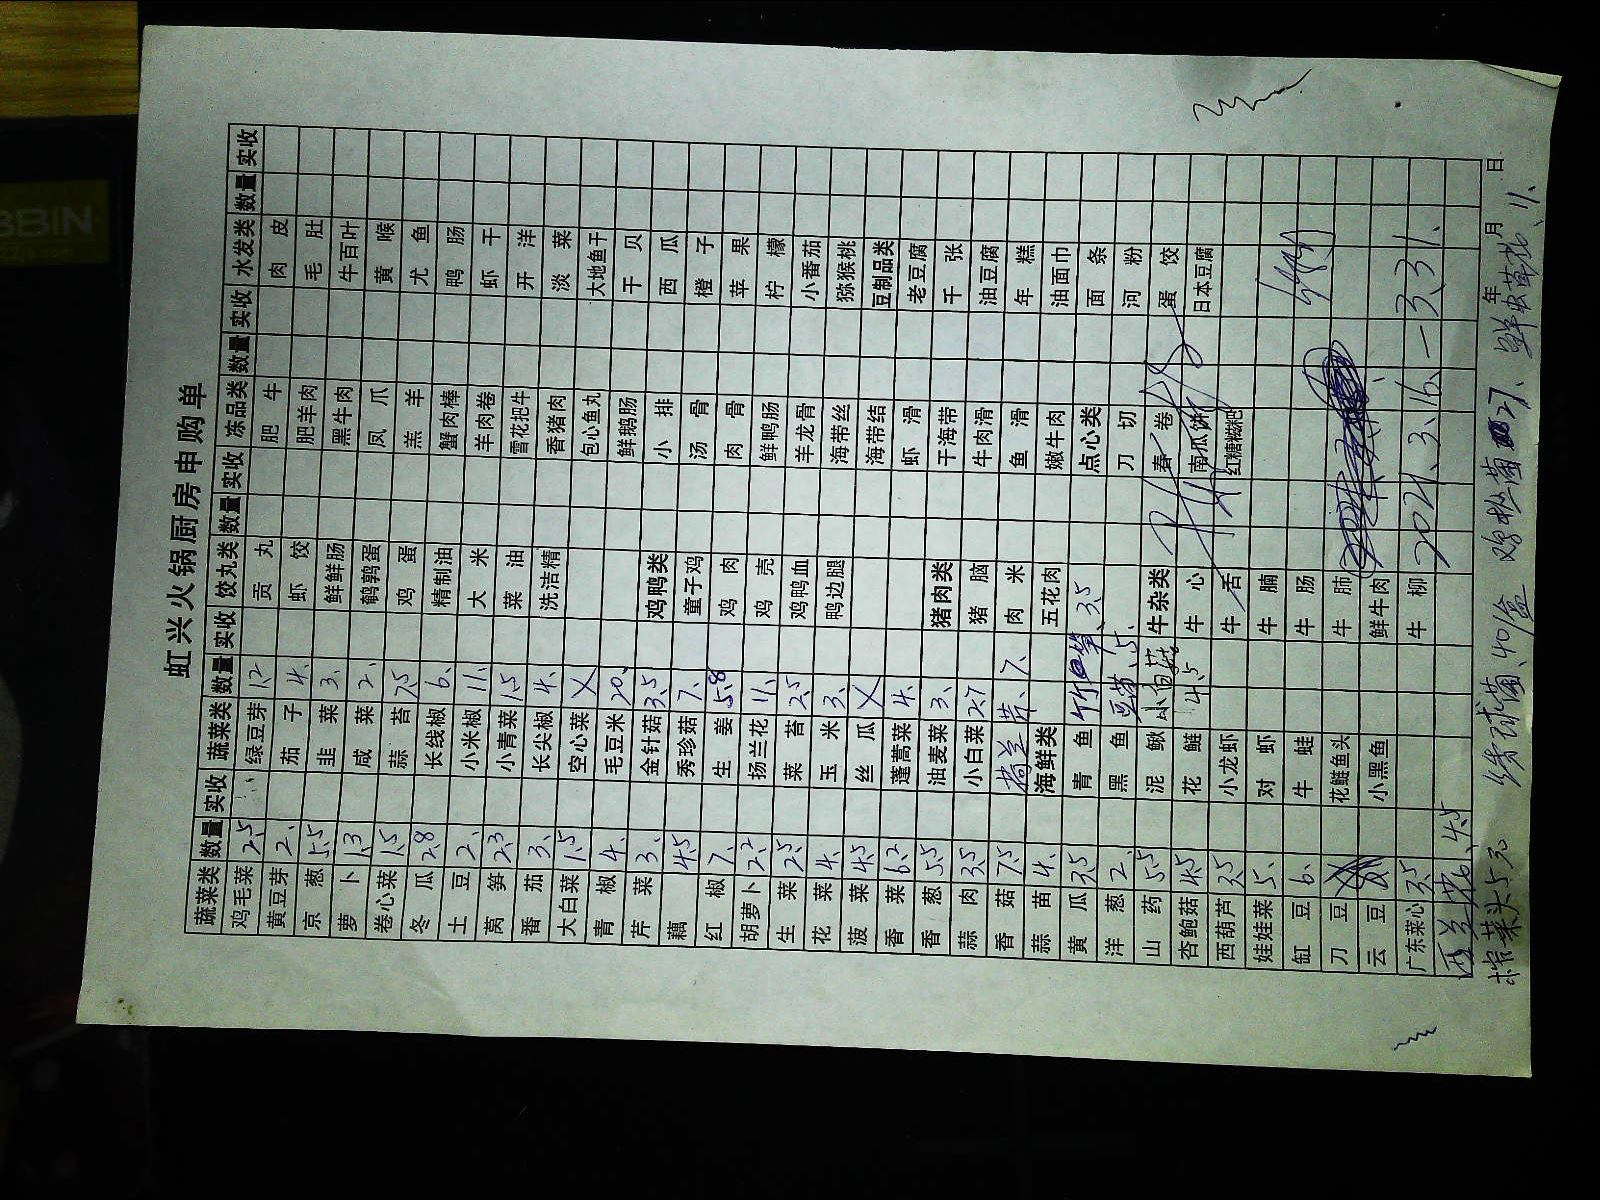 虹兴火锅厨房申购单
蔬菜类 数量 实收 蔬菜类 数量 实收 饺丸类 数量 实收 冻品类 数量 实收 水发类 数量 实收
鸡毛菜 2.5 绿豆芽 1.2 贡丸 肥牛 肉皮
黄豆芽 2、 茄子 4、 虾饺 肥羊肉 毛肚
京葱 5.5 韭菜 3、 鲜鲜肠 黑牛肉 牛百叶
萝卜 1.3 咸菜 2、 鹌鹑蛋 凤爪 黄喉
卷心菜 1.5 蒜苔 7.5 鸡蛋 羔羊 尤鱼
冬瓜 2.8 长线椒 6、 精制油 蟹肉棒 鸭肠
土豆 2、 小米椒 11、 大米 羊肉卷 虾干
莴笋 2.3 小青菜 1.5 菜油 雪花把牛 开洋
番茄 3、 长尖椒 4、 洗洁精 香猪肉 淡菜
大白菜 1.5 空心菜 X 包心鱼丸 大地鱼干
青椒 4、 毛豆米 20、 鲜鹅肠 干贝
芹菜 3、 金针菇 3.5 鸡鸭类 小排 西瓜
藕 4.5 秀珍菇 7、 童子鸡 汤骨 橙子
红椒 7、 生姜 5.8 鸡肉 肉骨 苹果
胡萝卜 2.2 扬兰花 11、 鸡壳 鲜鸭肠 柠檬
生菜 2.5 菜苔 2.5 鸡鸭血 羊龙骨 小番茄
花菜 4、 玉米 3、 鸭边腿 海带丝 猕猴桃
菠菜 4.5 丝瓜 X 海带结 豆制品类
香菜 6.2 蓬蒿菜 4、 虾滑 老豆腐
香葱 5.5 油麦菜 3、 猪肉类 干海带 千张
蒜肉 3.5 小白菜 2.7 猪脑 牛肉滑 油豆腐
香菇 7.5 荷兰芹、7、 肉米 鱼滑 年糕
蒜苗 4、 海鲜类 五花肉 嫩牛肉 油面巾
黄瓜 3.5 青鱼 3.5 点心类 面条
洋葱 2、 黑鱼 刀切 河粉
山药 5.5 泥鳅 牛杂类 春卷 蛋饺
杏鲍菇 4.5 花鲢 4.5 牛心 南瓜饼 日本豆腐
西葫芦 3.5 小龙虾 牛舌 红糖糍粑
娃娃菜 5、 对虾 牛腩
缸豆 6、 牛蛙 牛肠
刀豆 花鲢鱼头 牛肺
云豆 小黑鱼 鲜牛肉
广东菜心 3.5 牛柳 2021.3.16-3.31.
西兰花、4.5
年 月 日
榨菜头5元 绣球菌、40/盒 鸡枞菌 27、 鲜虫草花、11、